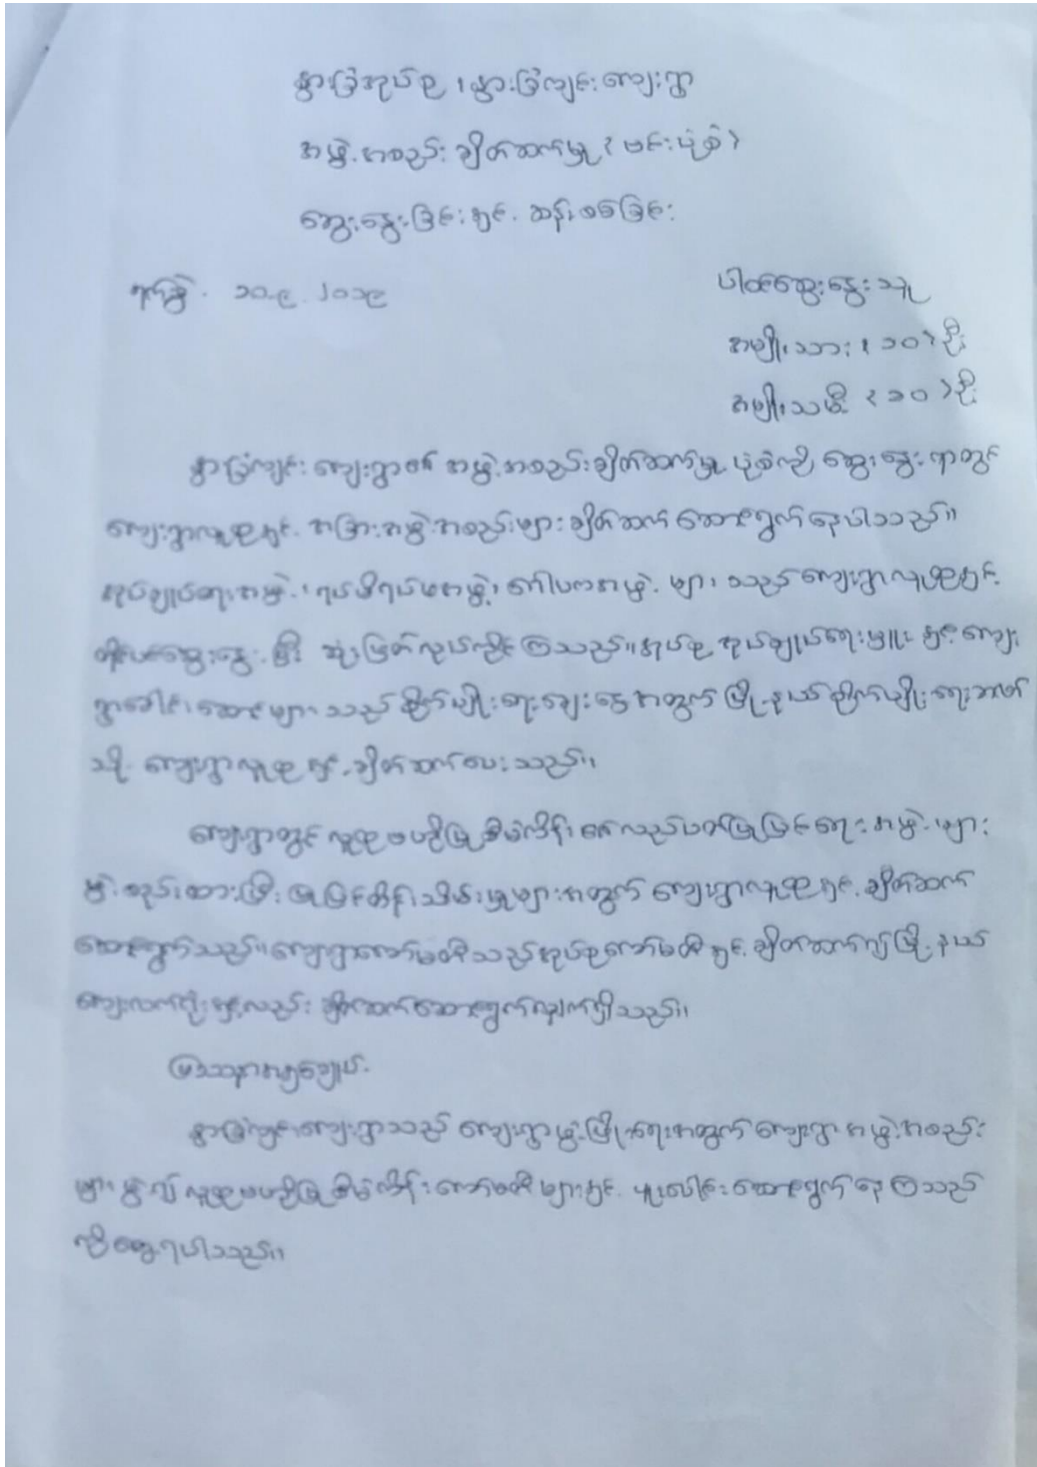 နွားခြံအုပ်စု ၊ နွားခြံကျင်းကျေးရွာ
အဖွဲ့အစည်းချိတ်ဆက်မှု ( ဗင်းပုံစံ )
ဆွေးနွေးခြင်းနှင့် ဆန်းစစ်ခြင်း
ရက်စွဲ ၁၁.၉.၂၀၁၉
ပါဝင်ဆွေးနွေးသူ
အမျိုးသား ( ၁၀ ) ဦး
အမျိုးသမီး ( ၁၀ ) ဦး
နွားခြံကျင်းကျေးရွာ၏ အဖွဲ့အစည်းချိတ်ဆက်မှု ပုံစံကို ဆွေးနွေးရာတွင်
ကျေးရွာလူထုနှင့် အခြားအဖွဲ့အစည်းများ ချိတ်ဆက် ဆောင်ရွက်နေပါသည်။
အုပ်ချုပ်ရေးအဖွဲ့ ၊ ရပ်မိရပ်ဖအဖွဲ့ ၊ များ သည် ကျေးရွာလူထုနှင့်
တိုင်ပင်ဆွေးနွေးပြီး ဆုံးဖြတ်လုပ်ကိုင်ကြသည်။ အုပ်စု အုပ်ချုပ်ရေးမှူး နှင့် ကျေး
ရွာခေါင်းဆောင်များ သည် စိုက်ပျိုးရေးချေးငွေ အတွက် မြို့နယ် စိုက်ပျိုးရေးဘဏ်
သို့ ကျေးရွာလူထုနှင့် ချိတ်ဆက်ပေးသည်။
ကျေးရွာတွင် လူထုဗဟိုပြုစီမံကိန်း၊ ပြုပြင်ရေးအဖွဲ့များ
ဖွဲ့စည်းထားပြီး ပြုပြင်ထိန်းသိမ်းမှုများအတွက် ကျေးရွာလူထုနှင့် ချိတ်ဆက်
ဆောင်ရွက်သည်။ ကျေးရွာကော်မတီသည် အုပ်စုကော်မတီနှင့် ချိတ်ဆက်၍ မြို့နယ်
ကျေးလက်ဦးစီးနှင့်လည်း ချိတ်ဆက်ဆောင်ရွက်လျက်ရှိသည်။
ပြဿနာအကျဉ်းချုပ်
နွားခြံကျင်းကျေးရွာသည် ကျေးရွာဖွံ့ဖြိုးရေးအတွက် ကျေးရွာ အဖွဲ့အစည်း
များ ဖွဲ့၍ လူထုဗဟိုပြုစီမံကိန်း ကော်မတီများနှင့် ပူးပေါင်းဆောင်ရွက်နေကြသည်
ကို တွေ့ရပါသည်။